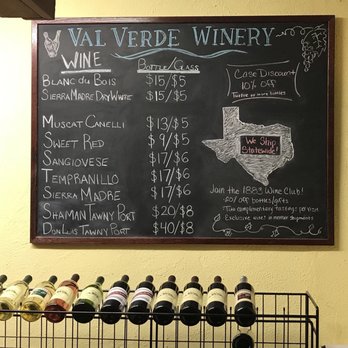 VAL VERDE WINERY
WINE
BOTTLE/GLASS
BLANC DU BOIS $15/$5
SIERRA MADRE DRY WHITE $15/$5
MUSCAT CANELLI $13/$5
SWEET RED $9/$5
SANGIOVESE $17/$6
TEMPRANILLO $17/$6
SIERRA MADRE $17/$6
SHAMAN TAWNY PORT $20/$8
DON LUIS TAWNY PORT $40/$8
CASE DISCOUNT
10% OFF
Twelve or more bottles
We Ship
Statewide!
JOIN THE 1883 WINE CLUB!
20% OFF bottles/gifts
Two complimentary tastings per visit
Exclusive wines in member shipments